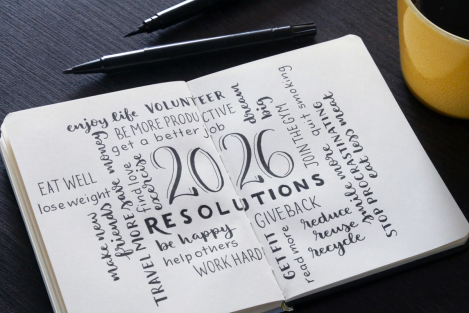 enjoy life
VOLUNTEER
BE MORE PRODUCTIVE
get a better job
dream big
JOIN THE GYM
quit smoking
EAT WELL
lose weight
make new friends
TRAVEL MORE
save money
find love
exercise
2026
RESOLUTIONS
smile more
STOP PROCRASTINATING
eat less meat
be happy
help others
WORK HARD
GIVE BACK
GET FIT
read more
reduce
reuse
recycle